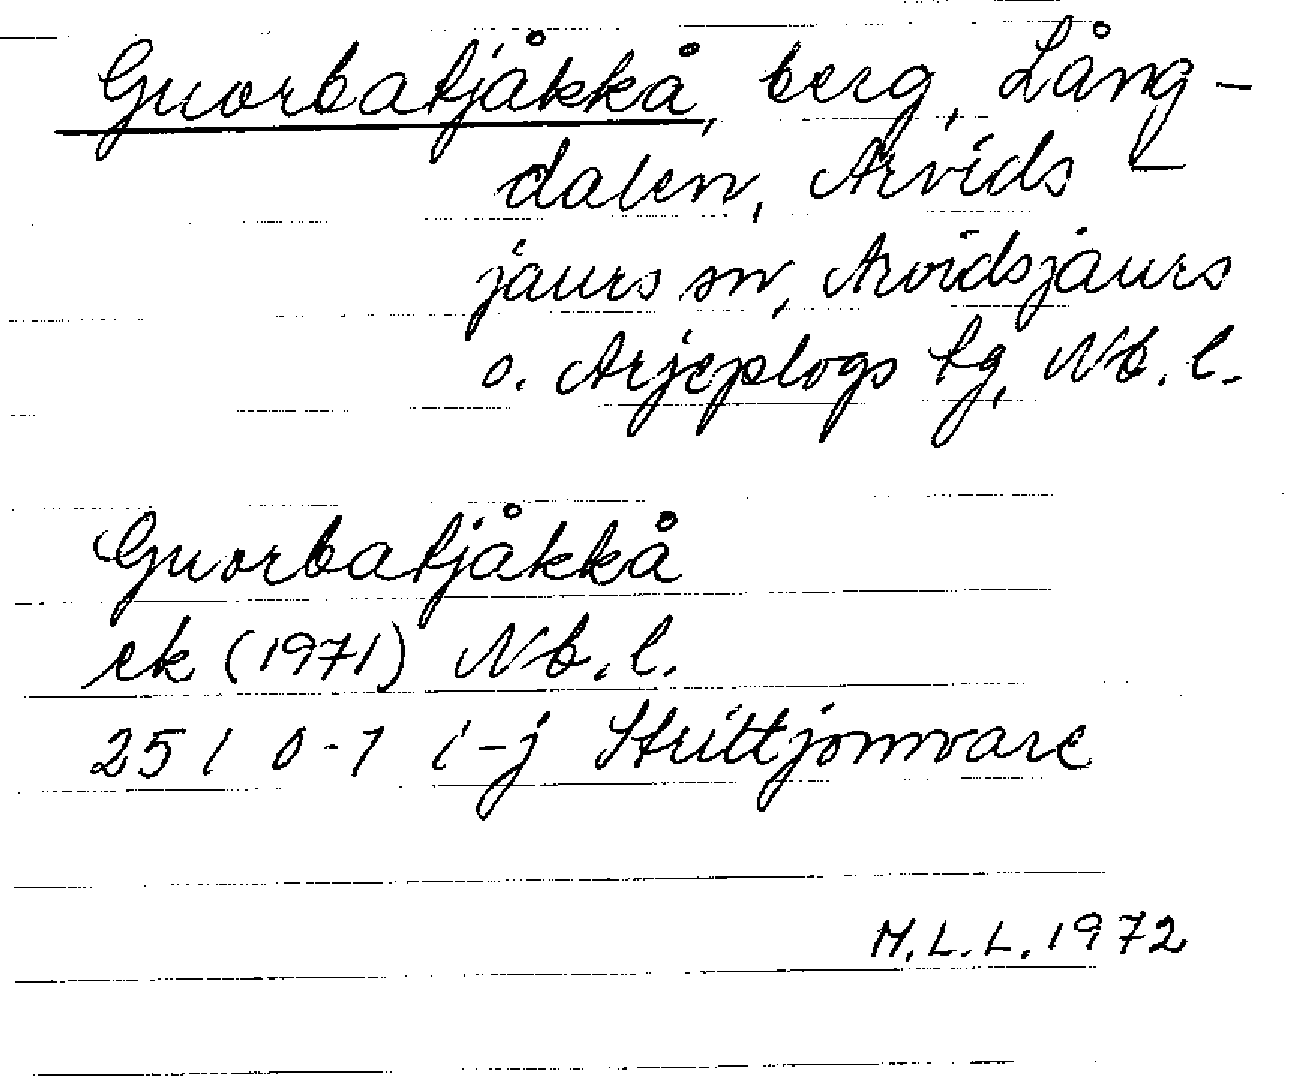 Guorbatjåkkå, berg, Lång-
dalen, Arvids-
jaurs sn, Arvidsjaurs
o. Arjeplogs tg, Nb. l.
Guorbatjåkkå
ek (1971) Nb. l.
25 I 0-1 i-j Strittjomvare
M.L.L. 1972